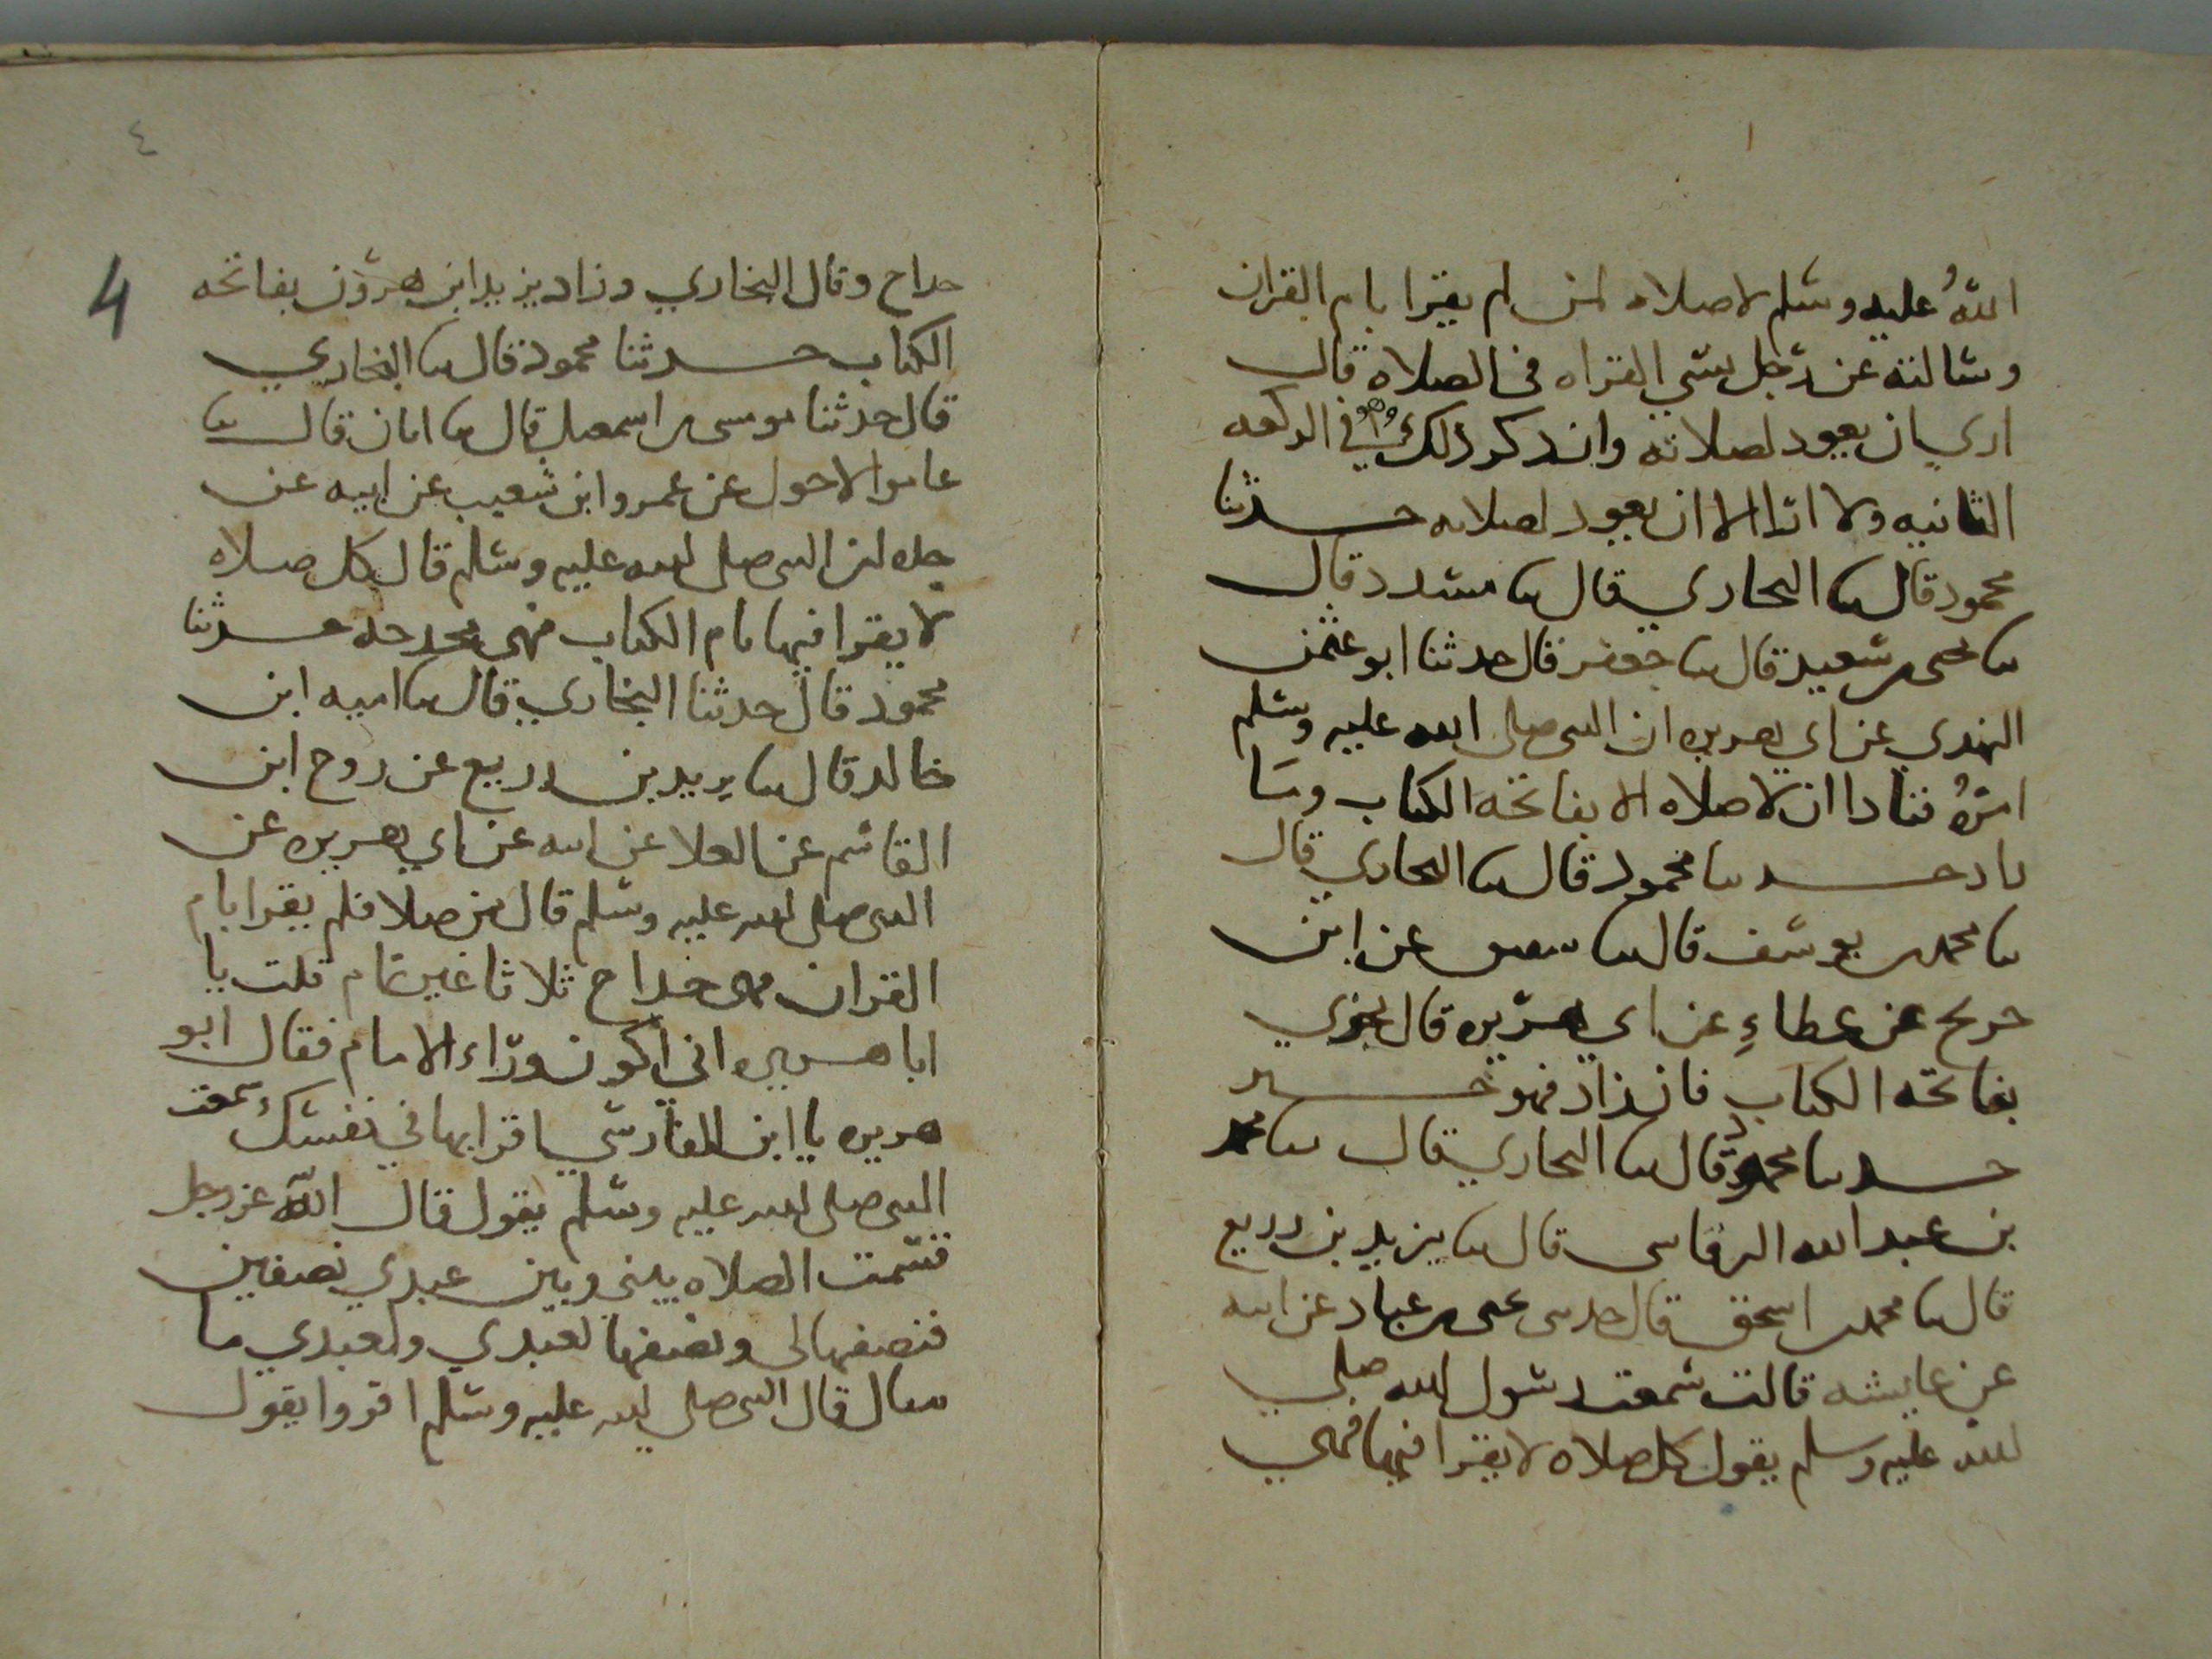 الله عليه وسلم لا صلاه لمن لم يقرا بام القران
وسالته عن رجل نسي القراه في الصلاه قال
اري ان يعود لصلاته وان ذكر ذلك وهو في الركعه
الثانيه ولا ارا الا ان يعود لصلاته حدثنا
محمود قال ثنا البخاري قال ثنا مسدد قال
ثنا يحيى بن سعيد قال ثنا جعفر قال حدثنا ابو عثمن
النهدي عن ابي هريره ان النبي صلى الله عليه وسلم
امره فنادا ان لا صلاه الا بفاتحه الكتاب وما
زاد حدثنا محمود قال ثنا البخاري قال
ثنا محمد بن يوسف قال ثنا سفين عن ابن
جريج عن عطاءِ عن ابي هريره قال يجزي
بفاتحه الكتاب فان زاد فهو خير
حدثنا محمود قال ثنا البخاري قال ثنا محمد
بن عبد الله الرقاشي قال ثنا يزيد بن زريع
قال ثنا محمد بن اسحق قال حدثني يحيى بن عباد عن ابيه
عن عايشه قالت سمعت رسول الله صلي
الله عليه وسلم يقول كل صلاه لا يقرا فيها فهي
٤
4
خداج وقال البخاري وزاد يزيد ابن هرون بفاتحه
الكتاب حدثنا محمود قال ثنا البخاري
قال حدثنا موسى بن اسمعيل قال ثنا ابان قال ثنا
عامر الاحول عن عمرو ابن شعيب عن ابيه عن
جده ان النبي صلى الله عليه وسلم قال كل صلاه
لا يقرا فيها بام الكتاب فهي مخدجه حدثنا
محمود قال حدثنا البخاري قال ثنا اميه ابن
خالد قال ثنا يزيد بن زريع عن روح ابن
القاسم عن العلا عن ابيه عن ابي هريره عن
النبي صلى الله عليه وسلم قال من صلا فلم يقرا بام
القران فهي خداج ثلاثا غير تمام قلت يا
ابا هريره اني اكون وراء الامام فقال ابو
هريره يا ابن الفارسي اقرا بها في نفسك سمعت
النبي صلى الله عليه وسلم يقول قال اللّه عز وجل
قسمت الصلاه بيني وبين عبدي نصفين
فنصفها لي ونصفها لعبدي ولعبدي ما
سال قال النبي صلى الله عليه وسلم اقروا يقول